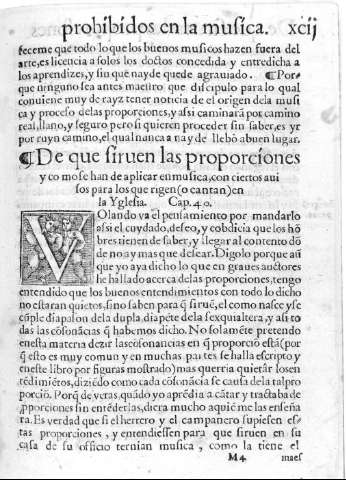 prohibidos en la musica. xcij
ſeceme que todo lo que los buenos musicos hazen fuera del
arte, es licencia a ſolos los doctos concedida y entredicha a
los aprendizes, y ſin que nayde quede agrauiado. ¶ Por-
que ninguno ſea antes maeſtro que diſcipulo para lo qual
conuiene muy de rayz tener noticia de el origen dela muſi
ca y proceſo delas proporciones, y aſsi caminarà por camino
real, llano, y ſeguro pero ſi quieren proceder ſin ſaber, es yr
por ruyn camino, el qual nunca a nayde lleuò a buen lugar.
¶ De que ſiruen las proporciones
y como ſe han de aplicar en muſica, con ciertos aui
ſos para los que rigen (o cantan) en
la Ygleſia. Cap. 40.
VOlando va el penſamiento por mandarlo
aſsi el cuydado, deſeo, y cobdicia que los hõ
bres tienen de ſaber, y llegar al contento dõ
de no ay mas que deſear. Digolo porque aũ
que yo aya dicho lo que en graues auctores
he hallado acerca delas proporciones, tengo
entendido que los buenos entendimientos con todo lo dicho
no eſtaran quietos, ſino ſaben para q̃ ſiruẽ, el como naſce y ſe
cũple diapaſon dela dupla, diapẽte dela ſexquialtera, y aſsi to
das las cõſonãcias q̃ habemos dicho. No ſolamẽte pretendo
eneſta materia dezir las cõſonancias en q̃ proporciõ eſtã (por
q̃ eſto es muy comun y en muchas partes ſe halla eſcripto y
en eſte libro por figuras moſtrado) mas querria quietàr los en
tẽdimiẽtos, diziẽdo como cada cõſonãcia ſe cauſa dela tal pro
porciõ. Porq̃ de veras, quãdo yo aprẽdia a cãtar y tractaba de
ꝓporciones ſin entẽderlas, diera mucho a quiẽ me las enſeña
ra. Es verdad que ſi el herrero y el campanero ſupieſen eſ-
tas proporciones, y entendieſſen para que ſiruen en ſu
caſa de ſu officio ternian muſica, como la tiene el
M4 maeſ